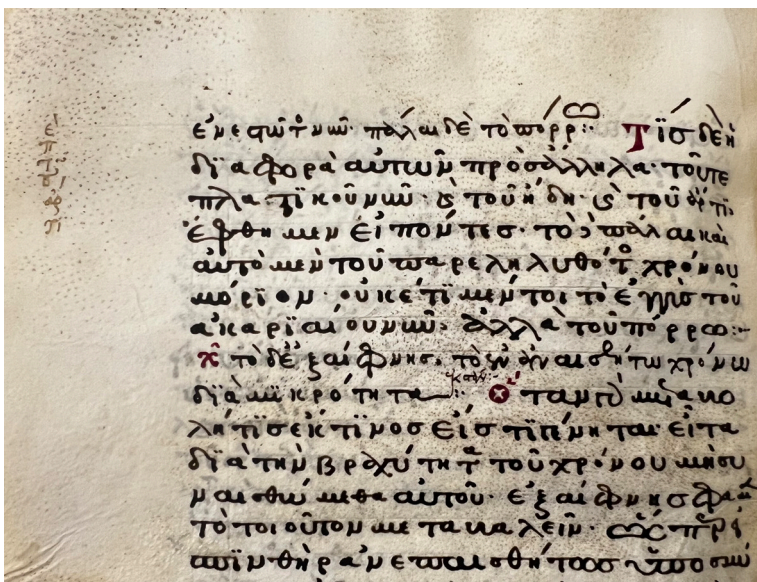 ἐνεστῶτ νῦν· πάλαι δὲ τὸ πόρρω:· Τίς δὲ ἡ
διαφορὰ αὐτῶν πρὸς ἄλληλα· τοῦ τε
πλατικοῦ νῦν· καὶ τοῦ ἤδη· καὶ τοῦ ἄρτι,
ἔφθημεν εἰπόντες· τὸ πάλαι καὶ
αὐτὸ μὲν τοῦ παρεληλυθότ χρόνου
μόριον· οὐκέτι μέντοι τὸ ἐγγὺς τοῦ
ἀκαριαίου νῦν· ἀλλὰ τοῦ πόρρω:·
τὸ δὲ ἐξαίφνης, τὸ ἐν ἀναισθήτω χρόνω
διὰ μικρότητα Ὅταν
λητισ ἔκ τινος εἴς τι γίνηται· εἶτα
διὰ τὴν βραχύτητα τοῦ χρόνου μὴ συ
ναισθώμεθα αὐτοῦ· ἐξαίφνης φαμ
τὸ τοιοῦτον μεταβαλεῖν·